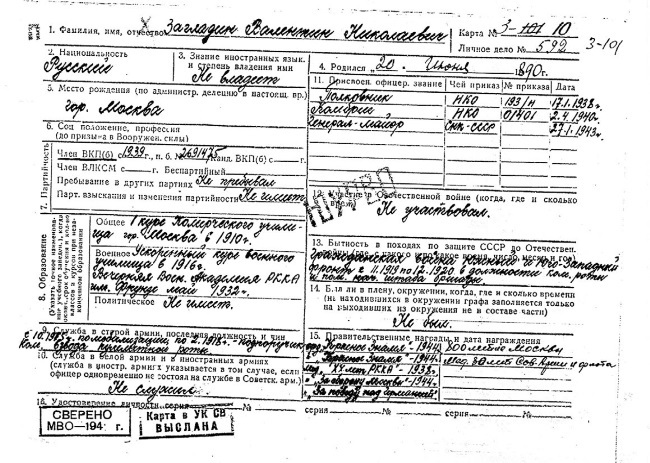 1. Фамилия, имя, отчество Загладин Валентин Николаевич
Карта № 3- 10
Личное дело № 592 3-101
2. Национальность
Русский
3. Знание иностранных язык. и степень владения ими
Не владеет
4. Родился „20" Июня 1890 г.
5. Место рождения (по администр. делению в настоящ. вр.)
гор. Москва
6. Соц положение, профессия
(до призы-а в Вооружен. силы)
7. Партийность
Член ВКП(б) 1939 г., п. б. № 2691475 Канд. ВКП(б) с — г.
Член ВЛКСМ с — г. Беспартийный —
Пребывание в других партиях Не пребывал
Парт. взыскания и изменения партийности Не имеет
8. Образование
(Указать точное наименова-
ние учебного заведен., когда
Общее 1 курс Комерческого учили-
ща гор. Москва в 1910 г.
Военное Ускоренный курс военного
училища в 1916 г.
Воен. Академия РККА
им. Фрунзе май 1932 г.
Политическое Не имеет.
9. Служба в старой армии, последняя должность и чин
С 10.1915 г. по мобилизации по 2.1918 г. Подпоручик
10. Служба в белой армии и в иностранных армиях
(служба в иностр. армиях указывается в том случае, если
офицер одновременно не состоял на службе в Советск. арм.)
Не служил.
11. Присвоен. офицер. звание Чей приказ № приказа Дата
Полковник НКО 193/н 17.1.1938 г.
Комбриг НКО 01401 2.4.1940 г.
Генерал-майор СНК-СССР 27.1.1943 г.
12. Участие в Отечественной войне (когда, где и сколько
УМЕР
Не участвовал.
13. Бытность в походах по защите СССР до Отечествен.
Гражданская Южный и Юго-Западный
фронты с 11.1919 по 12.1920 в должности ком. роты
и пом. нач. штаба бригады.
14. Был ли в плену, окружении, когда, где и сколько времени
(на находившихся в окружении графа заполняется только
на выходивших из окружения не в составе части)
Не был.
15. Правительственные награды и дата награждения
„Красное Знамя"-1944 г. 800 летие Москвы
„Красное Знамя"-1944 г. Мед. 30 лет Сов. Армии и флота
мед. „XX лет РККА"-1938 г.
„За оборону Москвы"-1944 г.
„За победу над Германией"
16. Удостоверение личности серия № серия № серия №
СВЕРЕНО
МВО—194 г.
Карта в УК СВ
ВЫСЛАНА